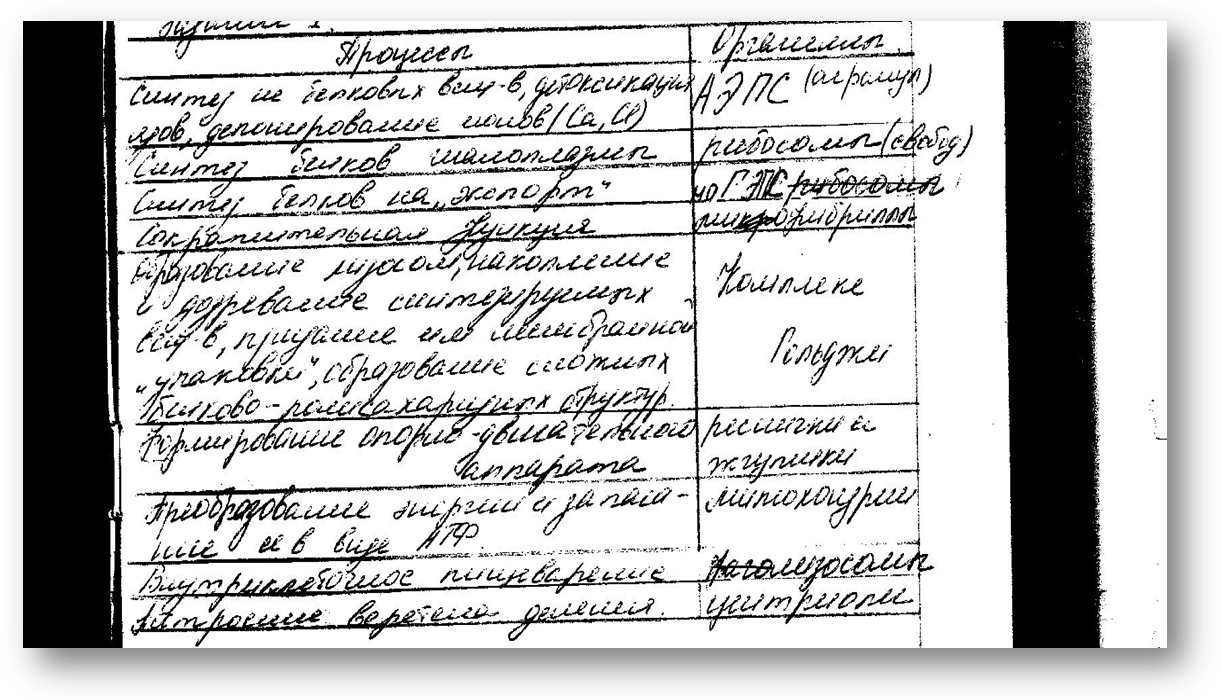 Задание 1.
Процессы Органеллы.
Синтез не белковых вещ-в, детоксикация АЭПС (агранул)
ядов, депонирование ионов (Ca, Cl)
Синтез белков гиалоплазмы рибосомы (свобод)
Синтез белков на „экспорт" ГЭПС рибосомы
Сократительная функция микрофибриллы
Образование лизосом, накопление Комплекс
и дозревание синтезируемых
вещ-в, придание им мембранной Гольджи
„упаковки", образование сложных
белково-полисахаридных структур.
Формирование опорно-двигательного реснички и
аппарата жгутики
Преобразование энергии и запаса- митохондрии
ние её в виде АТФ.
Внутриклеточное пищеварение фаголизосомы
Построение веретена деления. центриоли